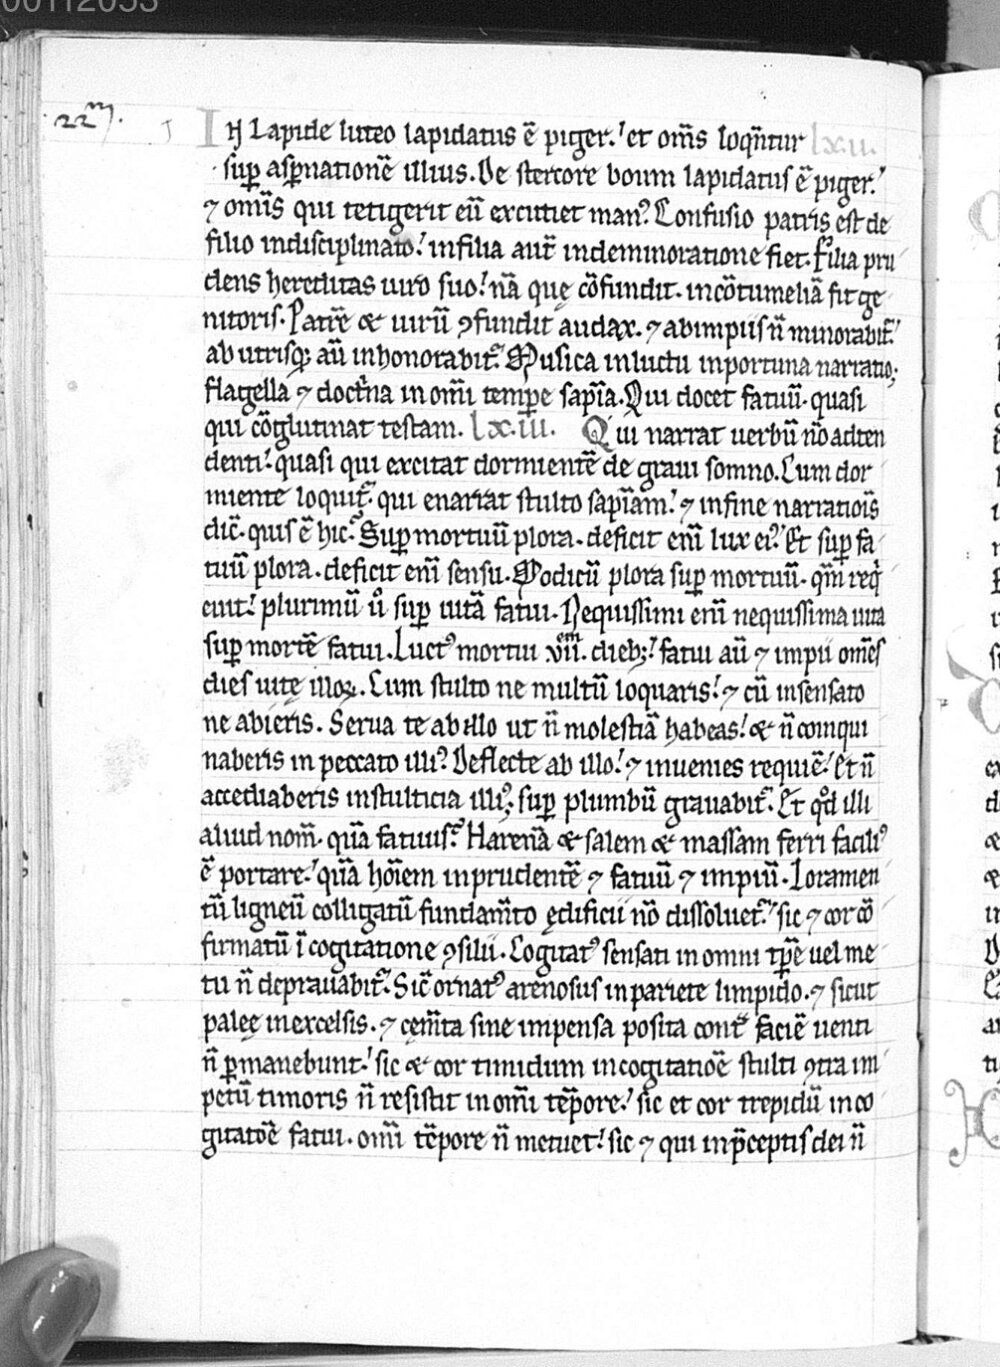 00112053
22m.
In Lapide luteo lapidatus ē piger.' et om̄s loqn̄tur lxii.
suꝑ asꝑnationē illius. De stercore boum lapidatus ē piger.'
⁊ om̄is qui tetigerit eū excutiet man᷒. Confusio patris est de
filio indisciplinato.' infilia aut̄ indeminoratione fiet. Filia pru
dens hereditas uiro suo.' nā quę cōfundit. incōtumeliā fit ge
nitoris. Patrē & uirū ꝯfundit audax. ⁊ abimpiis n̄ minorabit᷑.'
ab utrisq; aū inhonorabit᷑. Musica inluctu inportuna narratio;
flagella ⁊ doct̓na in om̄i temꝑe sapīa. Qui docet fatuū. quasi
qui cōglutinat testam. lx.iii. Qui narrat uerbū nō adten
denti.' quasi qui excitat dormientē de graui somno. Cum dor
miente loquit᷑. qui enarrat stulto sapīam.' ⁊ infine narratiōis
dic̄. quis ē hic? Suꝑ mortuū plora. deficit eni̅ lux ei᷒.' Et suꝑ fa
tuū plora. deficit eni̅ sensu. Modicū plora suꝑ mortuū. qm̄ req̇
euit.' plurimū u̇o suꝑ uitā fatui. Nequissimi eni̅ nequissima uita
suꝑ mortē fatui. Luct᷒ mortui .vii.em dieb;.' fatui aū ⁊ impii om̄es
dies uitę illoꝝ. Cum stulto ne multū loquaris.' ⁊ cū insensato
ne abieris. Serua te ab illo ut n̄ molestiā habeas.' & n̄ coinqui
naberis in peccato illi᷒. Deflecte ab illo.' ⁊ inuenies requiē.' Et n̄
accediaberis instulticia illi᷒; suꝑ plumbū grauabit᷑. Et qd̓ illi
aliud nom̄. quā fatuus? Harenā & salem & massam ferri facili᷒
ē portare.' quā hōīem inprudentē ⁊ fatuū ⁊ impiū. Loramen
tū ligneū colligatū fundam̄to ędificii nō dissoluet᷑.' sic ⁊ cor cō
firmatū ī cogitatione ꝯsilii. Cogitat᷒ sensati in omni tꝑe uel me
tu n̄ deprauabit᷑. Sic̄ ornat᷒ arenosus in pariete limpido. ⁊ sicut
paleę inexcelsis. ⁊ cęm̄ta sine impensa posita cont̃ faciē uenti
n̄ ꝑmanebunt.' sic & cor timidum incogitatiōe stulti ꝯtra im
petū timoris n̄ resistit in om̄i tēpore.' sic et cor trepidū in co
gitatōe fatui. om̄i tēpore n̄ metuet.' sic ⁊ qui inp̄ceptis dei n̄